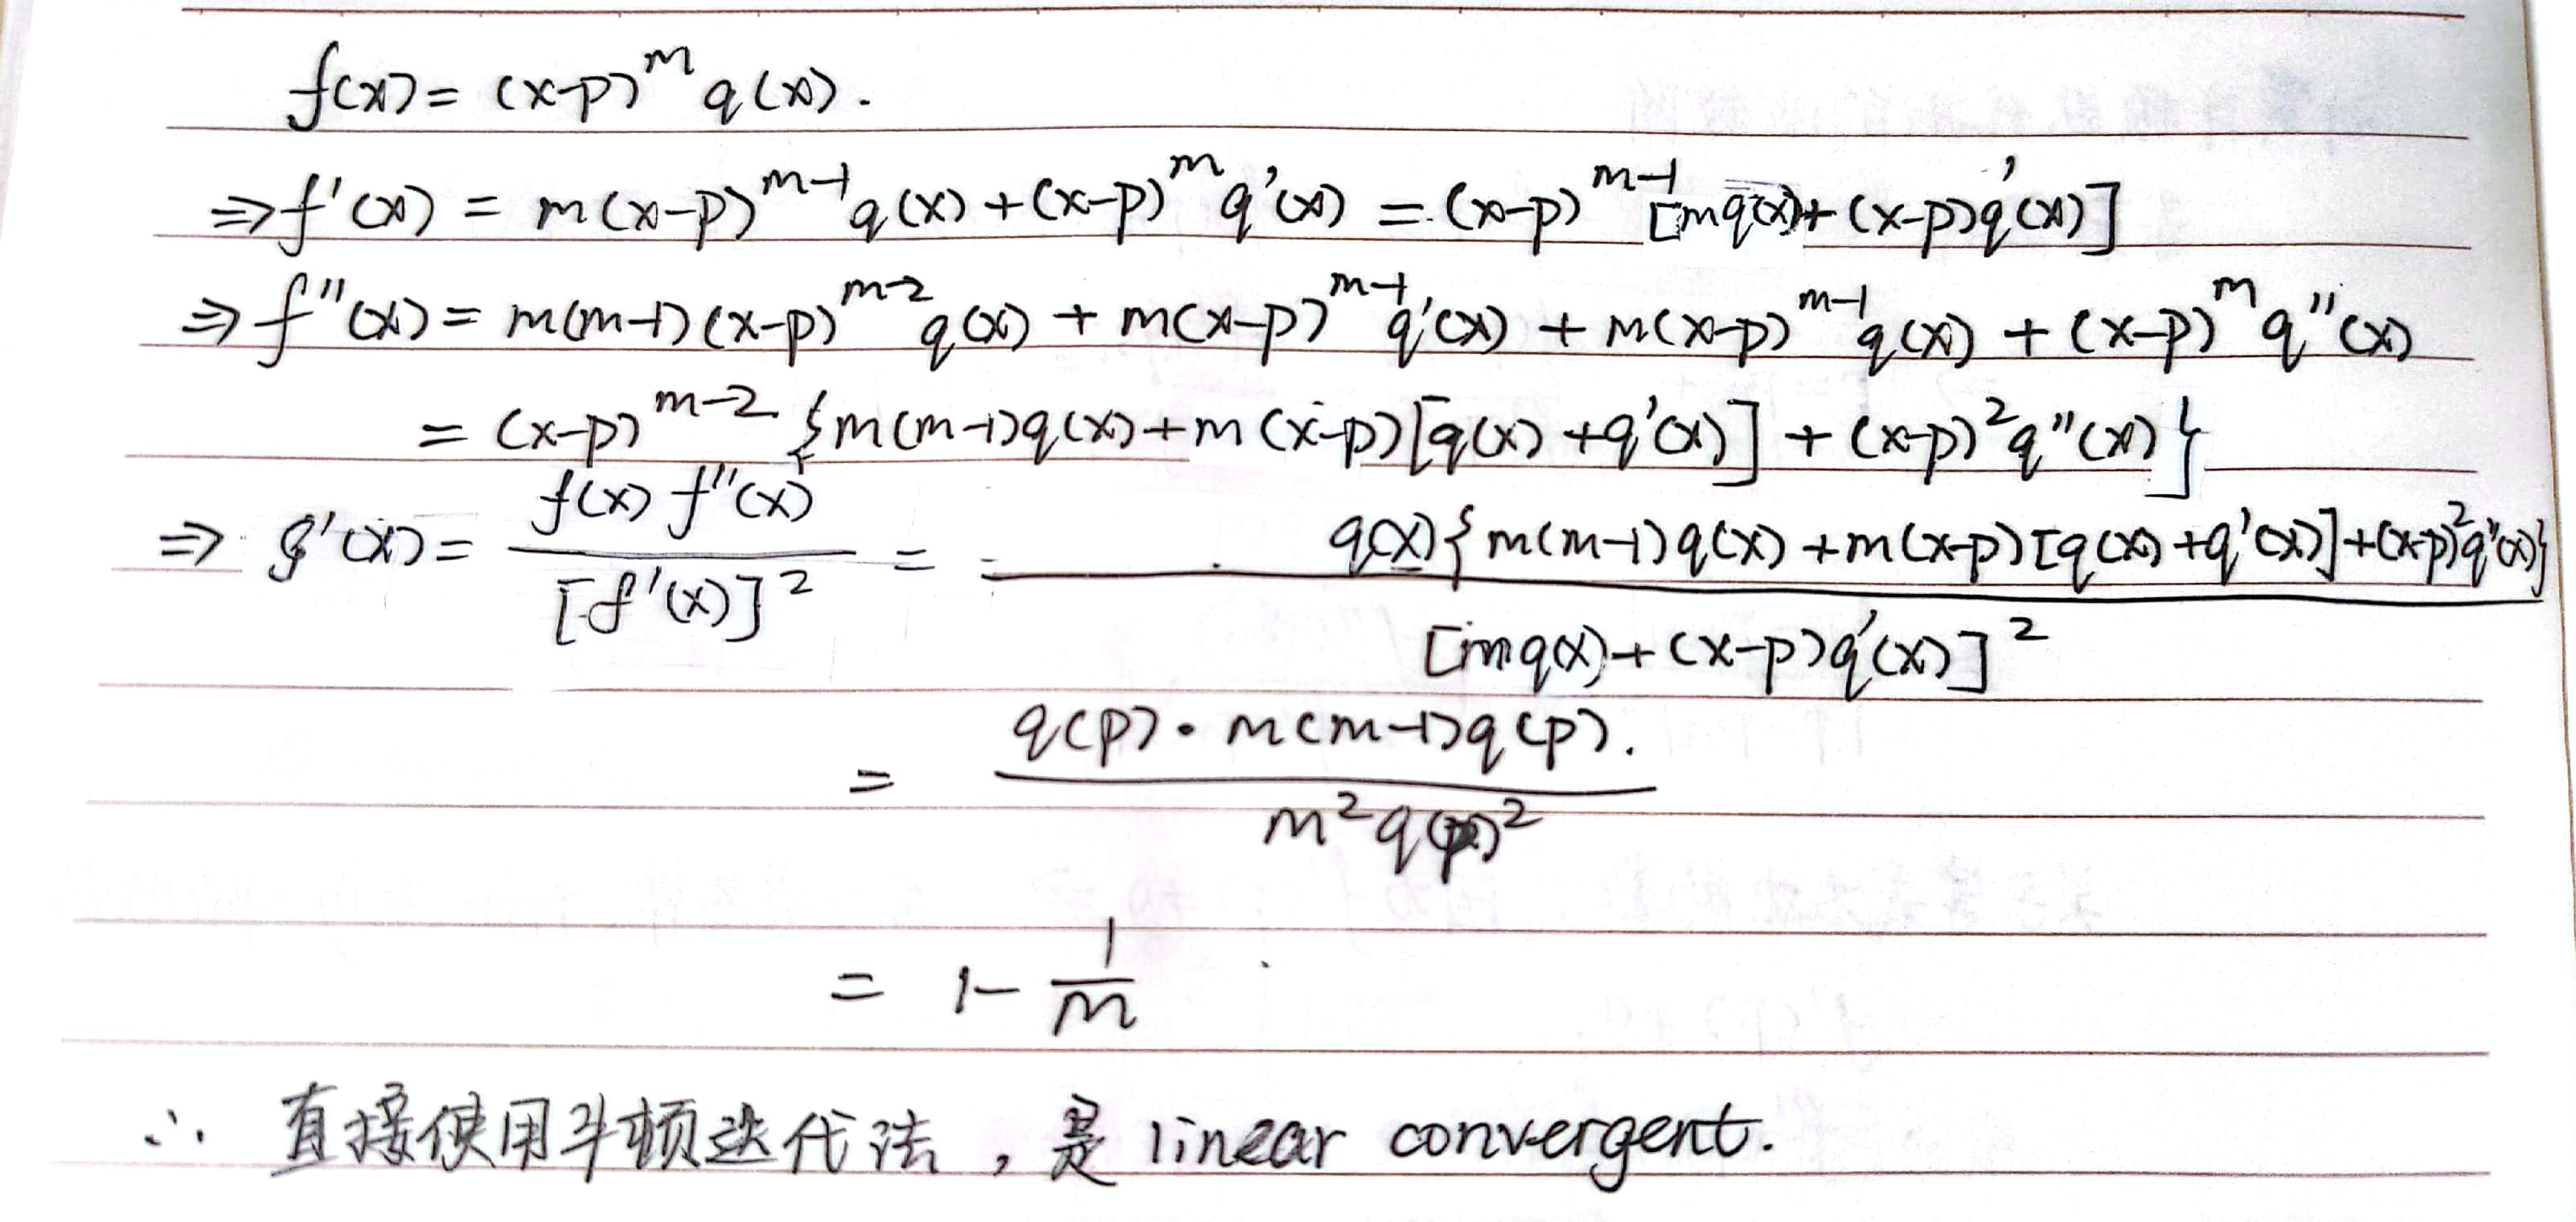 f(x) = (x-p)^m q(x).
⇒ f'(x) = m(x-p)^{m-1} q(x) + (x-p)^m q'(x) = (x-p)^{m-1} [mq(x) + (x-p)q'(x)]
⇒ f''(x) = m(m-1)(x-p)^{m-2} q(x) + m(x-p)^{m-1} q'(x) + m(x-p)^{m-1} q(x) + (x-p)^m q''(x)
= (x-p)^{m-2} {m(m-1)q(x) + m(x-p)[q(x) + q'(x)] + (x-p)^2 q''(x)}
⇒ g'(x) = \frac{f(x) f''(x)}{[f'(x)]^2} = \frac{q(x){m(m-1)q(x) + m(x-p)[q(x) + q'(x)] + (x-p)^2 q''(x)}}{[mq(x) + (x-p)q'(x)]^2}
= \frac{q(p) · m(m-1)q(p).}{m^2 q(p)^2}
= 1 - \frac{1}{m}
∴ 直接使用牛顿迭代法，是 linear convergent.